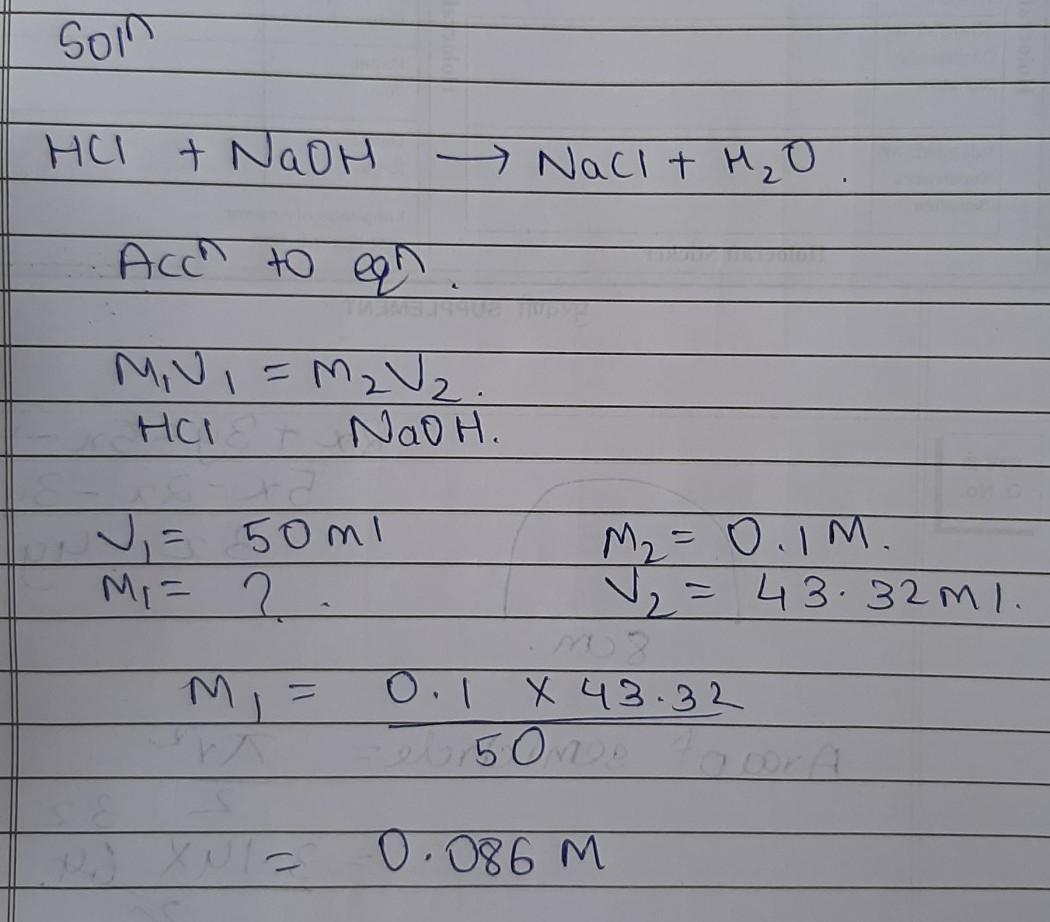 Solⁿ
HCl + NaOH → NaCl + H₂O.
Accⁿ to eqⁿ.
M₁V₁ = M₂V₂.
HCl NaOH.
V₁ = 50ml M₂ = 0.1M.
M₁ = ? . V₂ = 43.32ml.
M₁ = 0.1 × 43.32
50
= 0.086 M